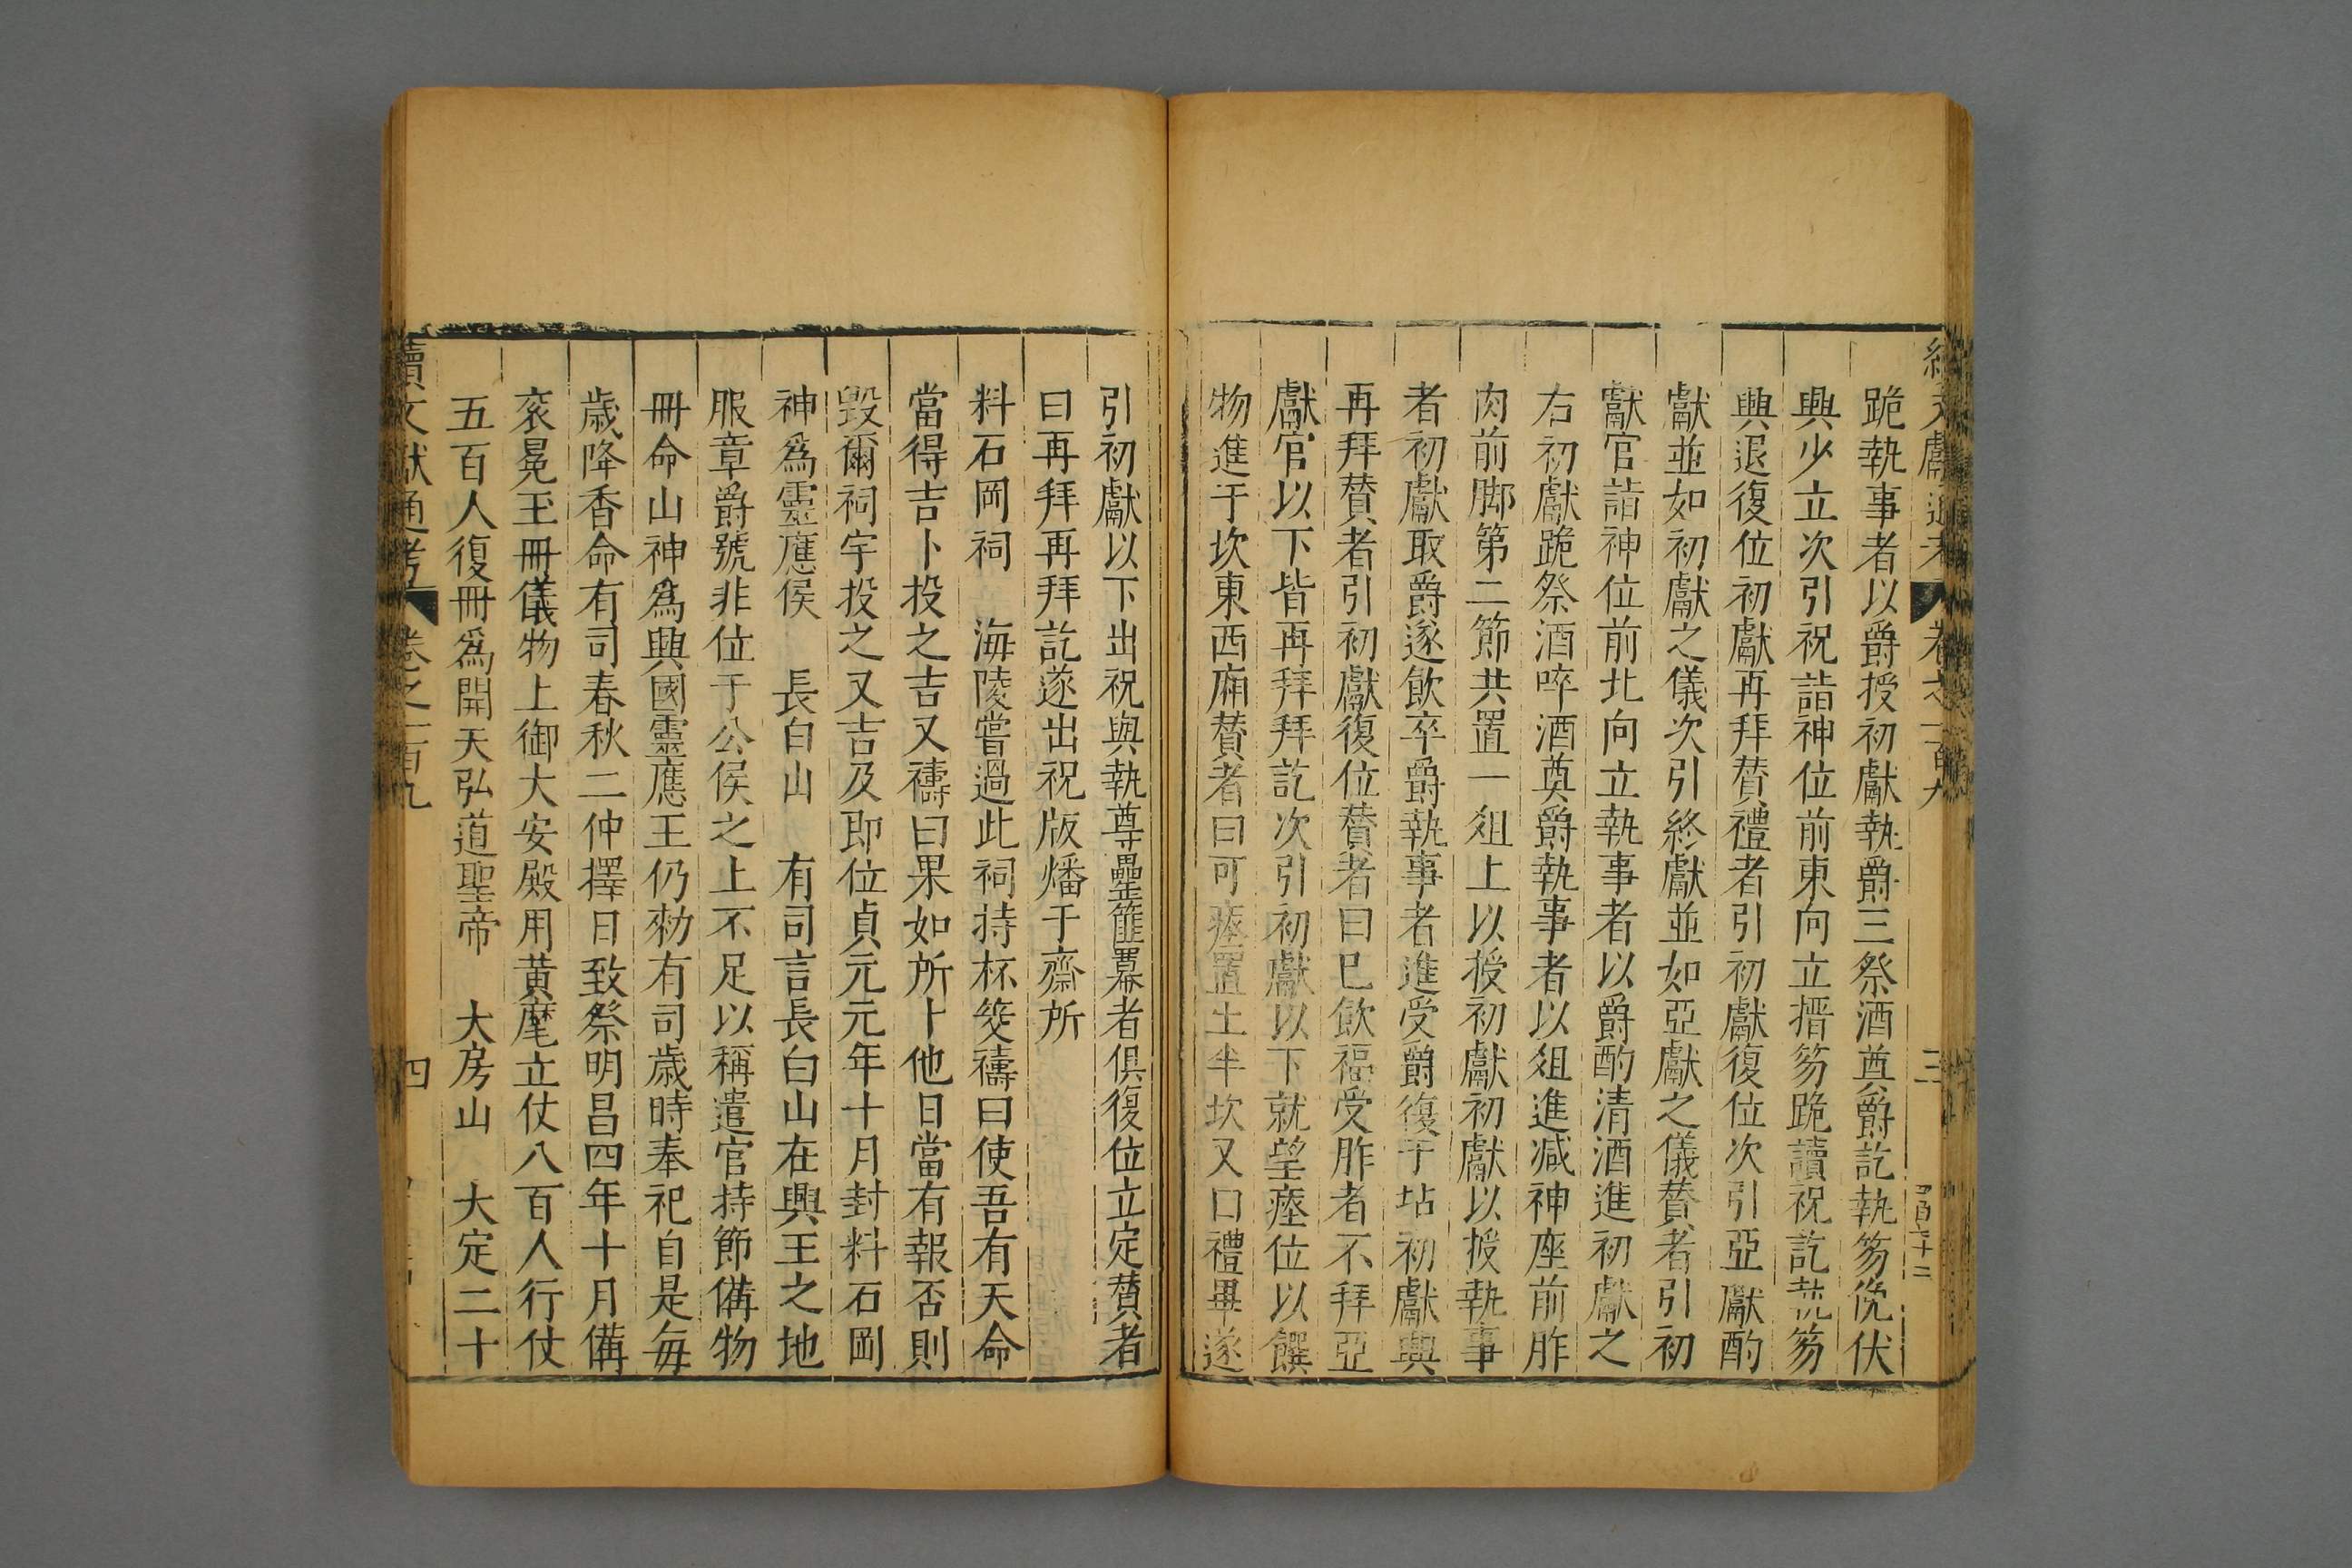 續文獻通考 卷之一百九 三
跪執事者以爵授初獻執爵三祭酒奠爵訖執笏俛伏
興少立次引祝詣神位前東向立搢笏跪讀祝訖執笏
興退復位初獻再拜賛禮者引初獻復位次引亞獻酌
獻並如初獻之儀次引終獻並如亞獻之儀賛者引初
獻官詣神位前北向立執事者以爵酌清酒進初獻之
右初獻跪祭酒啐酒奠爵執事者以俎進减神座前胙
肉前脚第二節共置一俎上以授初獻初獻以授執事
者初獻取爵遂飲卒爵執事者進受爵復于坫初獻興
再拜賛者引初獻復位賛者曰巳飲福受胙者不拜亞
獻官以下皆再拜拜訖次引初獻以下就望瘞位以饌
物進于坎東西廂賛者曰可瘞置土半坎又曰禮畢遂
引初獻以下出祝與執尊罍篚羃者俱復位立定賛者
曰再拜再拜訖遂出祝版燔于齋所
料石岡祠 海陵嘗過此祠持杯筊禱曰使吾有天命
當得吉卜投之吉又禱曰果如所卜他日當有報否則
毀爾祠宇投之又吉及即位貞元元年十月封料石岡
神爲靈應侯 長白山 有司言長白山在興王之地
服章爵號非位于公侯之上不足以稱遣官持節備物
冊命山神爲興國靈應王仍勑有司歲時奉祀自是每
歲降香命有司春秋二仲擇日致祭明昌四年十月備
衮冕玉冊儀物上御大安殿用黄麾立仗八百人行仗
五百人復冊爲開天弘道聖帝 大房山 大定二十
續文獻通考 卷之一百九 四